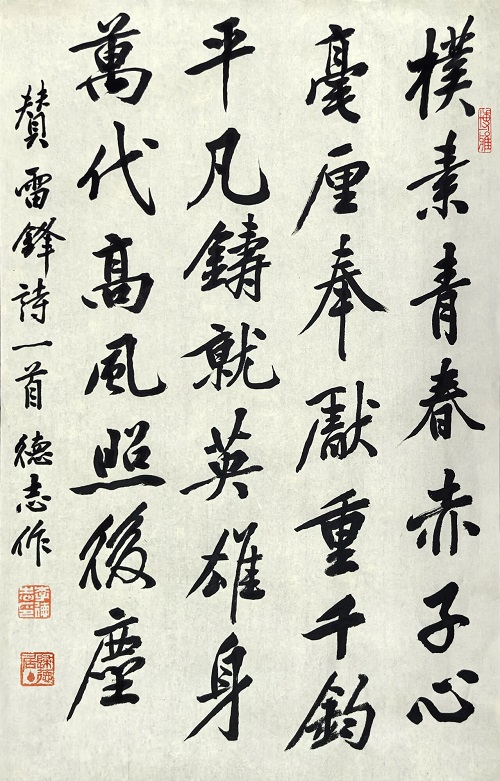 樸素青春赤子心
毫厘奉獻重千鈞
平凡鑄就英雄身
萬代高風照後塵
贊雷鋒詩一首 德志作